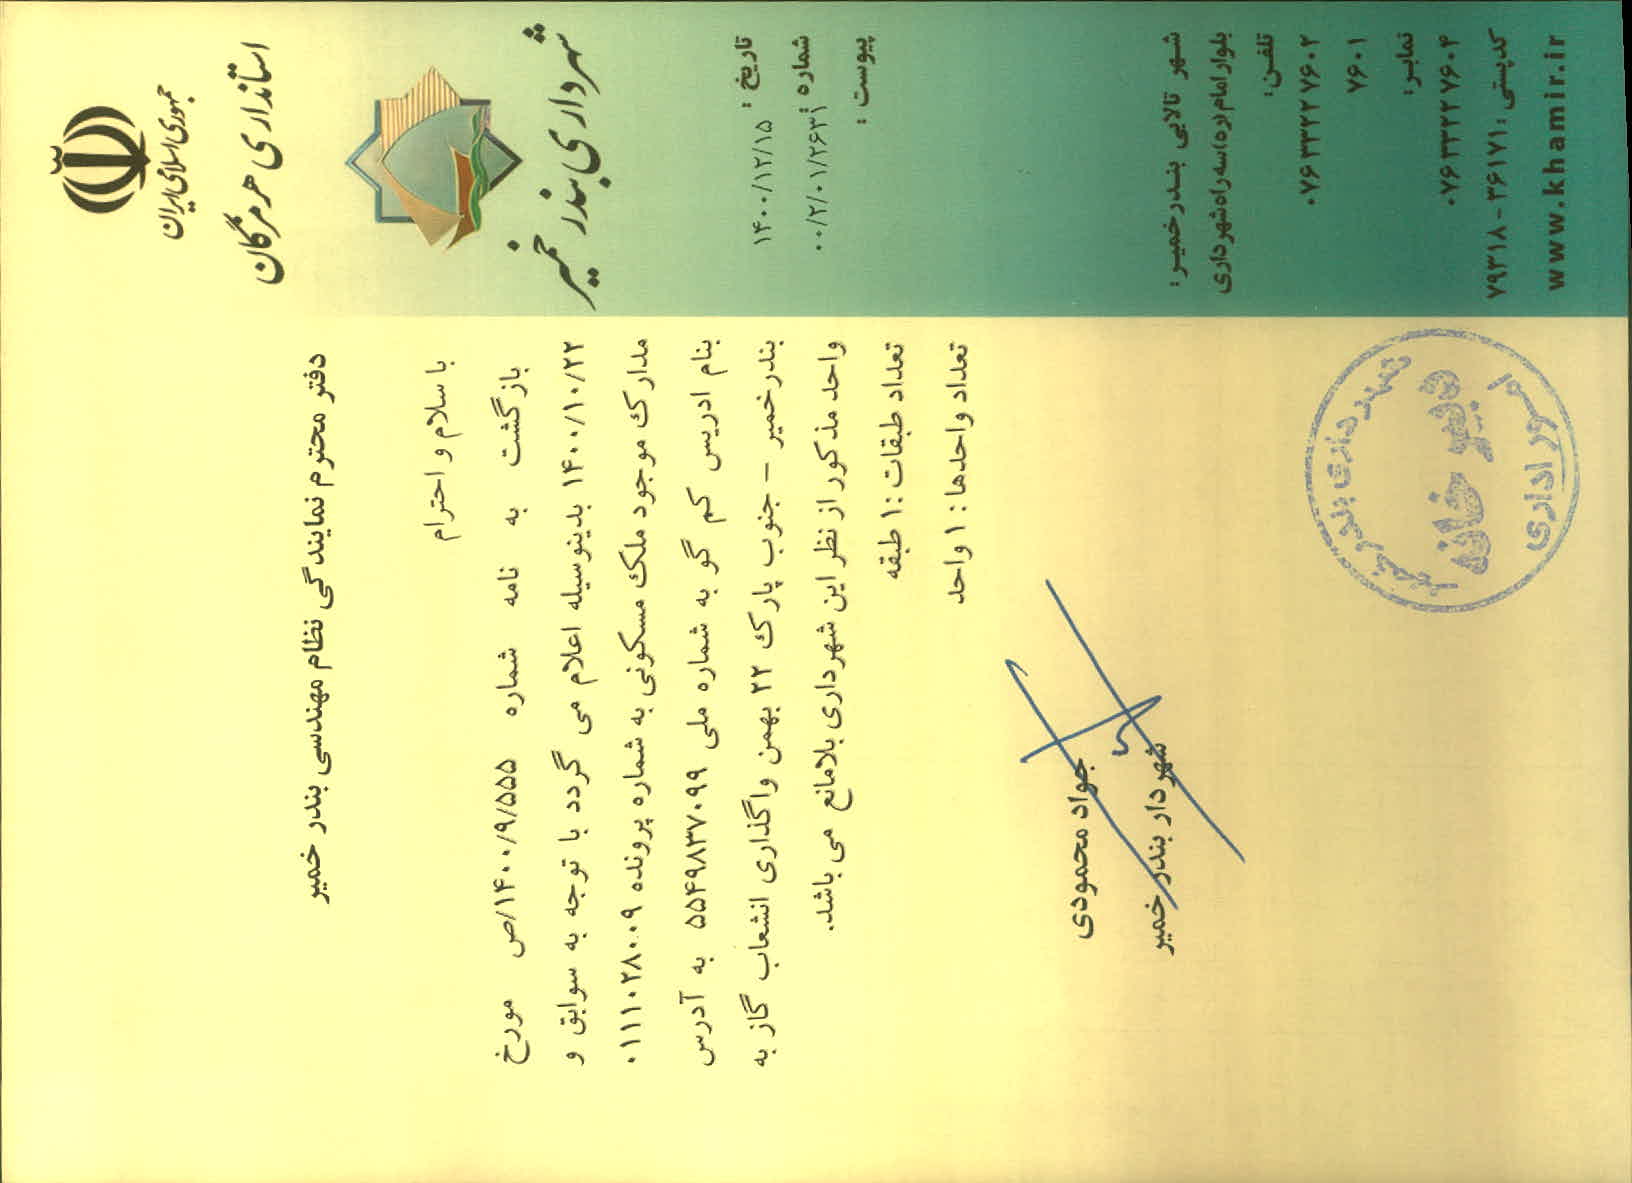 جمهوری اسلامی ایران
استانداری هرمزگان
شهرداری بندر خمیر
تاریخ : ۱۴۰۰/۱۲/۱۵
شماره : ۰۰/۲/۰۱/۲۶۳۱
پیوست :
دفتر محترم نمایندگی نظام مهندسی بندر خمیر
با سلام و احترام
بازگشت به نامه شماره ۱۴۰۰/۹/۵۵۵/ص مورخ
۱۴۰۰/۱۰/۲۲ بدینوسیله اعلام می گردد با توجه به سوابق و
مدارک موجود ملک مسکونی به شماره پرونده ۰۱۱۱۰۲۸۰۰۹
بنام ادریس کم گو به شماره ملی ۵۵۴۹۸۳۷۰۹۹ به آدرس
بندرخمیر – جنوب پارک ۲۲ بهمن واگذاری انشعاب گاز به
واحد مذکور از نظر این شهرداری بلامانع می باشد.
تعداد طبقات : ۱ طبقه
تعداد واحدها : ۱ واحد
جواد محمودی
شهردار بندر خمیر
شهرداری بندر خمیر
دبیرخانه
امور اداری
شهر تالابی بندرخمیر:
بلوار امام (ره) سه راه شهرداری
تلفن:
۰۷۶۳۳۲۲۷۶۰۲
۷۶۰۱
نمابر:
۰۷۶۳۳۲۲۷۶۰۴
کدپستی : ۳۶۱۷۱ - ۷۹۳۱۸
www.khamir.ir